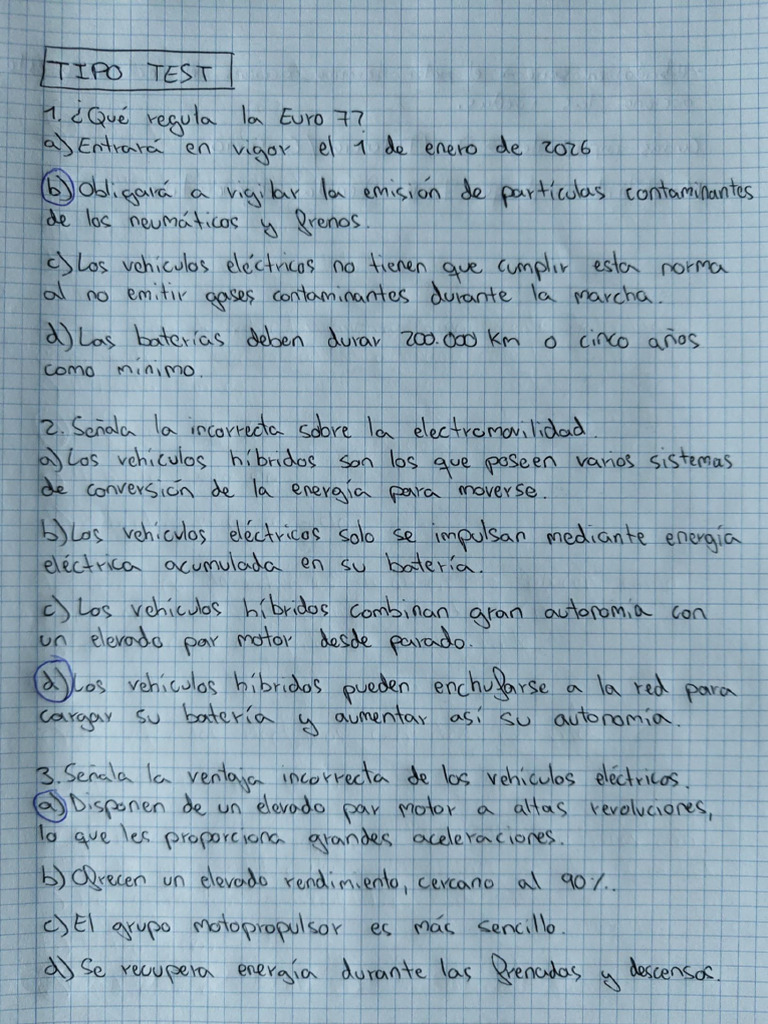 TIPO TEST
1. ¿Qué regula la Euro 7?
a) Entrará en vigor el 1 de enero de 2026
b) Obligará a vigilar la emisión de partículas contaminantes
de los neumáticos y frenos.
c) Los vehículos eléctricos no tienen que cumplir esta norma
al no emitir gases contaminantes durante la marcha.
d) Las baterías deben durar 200.000 Km o cinco años
como mínimo.
2. Señala la incorrecta sobre la electromovilidad.
a) Los vehículos híbridos son los que poseen varios sistemas
de conversión de la energía para moverse.
b) Los vehículos eléctricos solo se impulsan mediante energía
eléctrica acumulada en su batería.
c) Los vehículos híbridos combinan gran autonomía con
un elevado par motor desde parado.
d) Los vehículos híbridos pueden enchufarse a la red para
cargar su batería y aumentar así su autonomía.
3. Señala la ventaja incorrecta de los vehículos eléctricos.
a) Disponen de un elevado par motor a altas revoluciones,
lo que les proporciona grandes aceleraciones.
b) Ofrecen un elevado rendimiento, cercano al 90%.
c) El grupo motopropulsor es más sencillo.
d) Se recupera energía durante las frenadas y descensos.